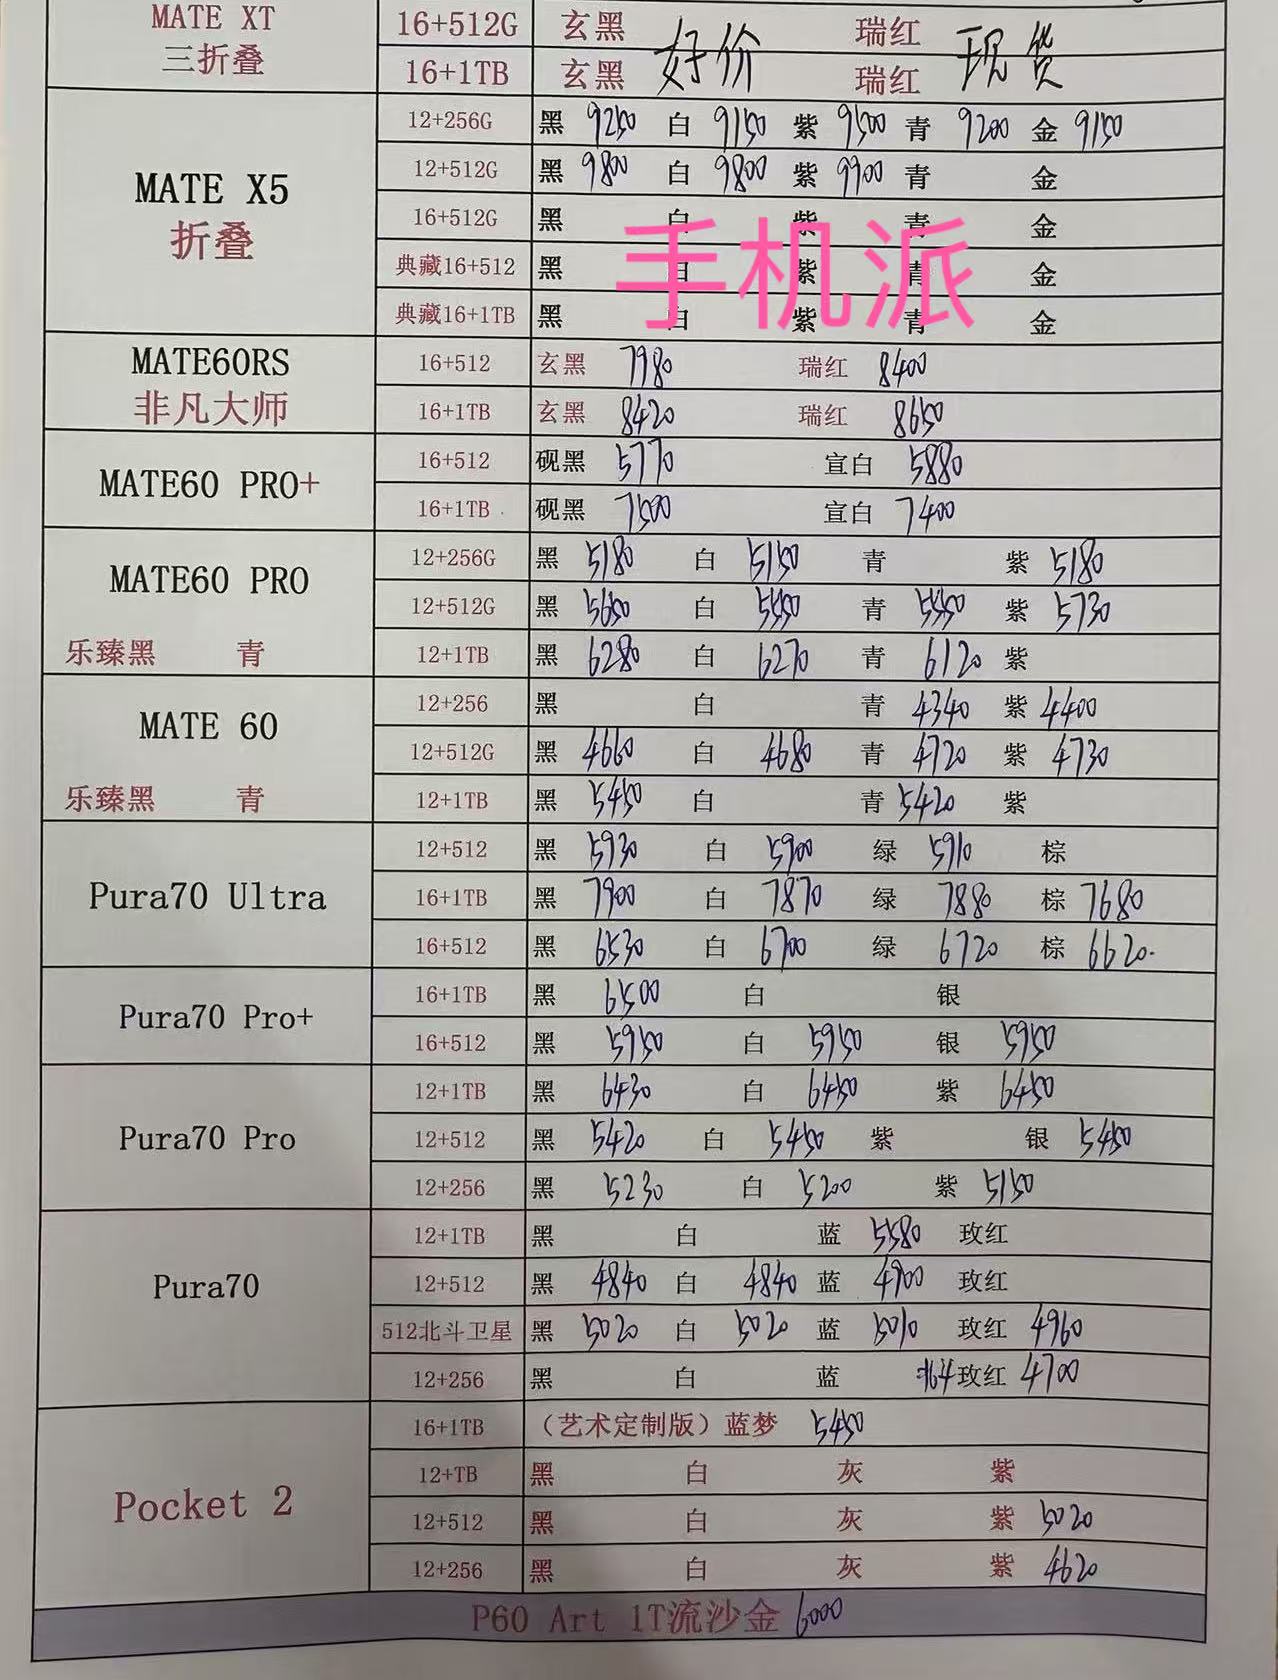 MATE XT 三折叠
16+512G 玄黑 好价 瑞红 现货
16+1TB 玄黑 瑞红
MATE X5 折叠
12+256G 黑 9250 白 9150 紫 9500 青 9200 金 9150
12+512G 黑 9800 白 9800 紫 9900 青 金
16+512G 黑 白 紫 青 金
手机派
典藏16+512 黑 白 紫 青 金
典藏16+1TB 黑 白 紫 青 金
MATE60RS 非凡大师
16+512 玄黑 7980 瑞红 8400
16+1TB 玄黑 8420 瑞红 8650
MATE60 PRO+
16+512 砚黑 5770 宣白 5880
16+1TB 砚黑 7500 宣白 7400
MATE60 PRO
乐臻黑 青
12+256G 黑 5180 白 5150 青 紫 5180
12+512G 黑 5650 白 5550 青 5550 紫 5730
12+1TB 黑 6280 白 6270 青 6120 紫
MATE 60
乐臻黑 青
12+256 黑 白 青 4340 紫 4400
12+512G 黑 4660 白 4680 青 4720 紫 4730
12+1TB 黑 5450 白 青 5420 紫
Pura70 Ultra
12+512 黑 5930 白 5900 绿 5910 棕
16+1TB 黑 7900 白 7870 绿 7880 棕 7680
16+512 黑 6530 白 6700 绿 6720 棕 6620.
Pura70 Pro+
16+1TB 黑 6500 白 银
16+512 黑 5950 白 5950 银 5950
Pura70 Pro
12+1TB 黑 6430 白 6450 紫 6450
12+512 黑 5420 白 5450 紫 银 5450
12+256 黑 5230 白 5200 紫 5150
Pura70
12+1TB 黑 白 蓝 5580 玫红
12+512 黑 4840 白 4840 蓝 4900 玫红
512北斗卫星 黑 5020 白 5020 蓝 5010 玫红 4960
12+256 黑 白 蓝 北斗 玫红 4700
Pocket 2
16+1TB （艺术定制版）蓝梦 5450
12+TB 黑 白 灰 紫
12+512 黑 白 灰 紫 5020
12+256 黑 白 灰 紫 4620
P60 Art 1T流沙金 6000